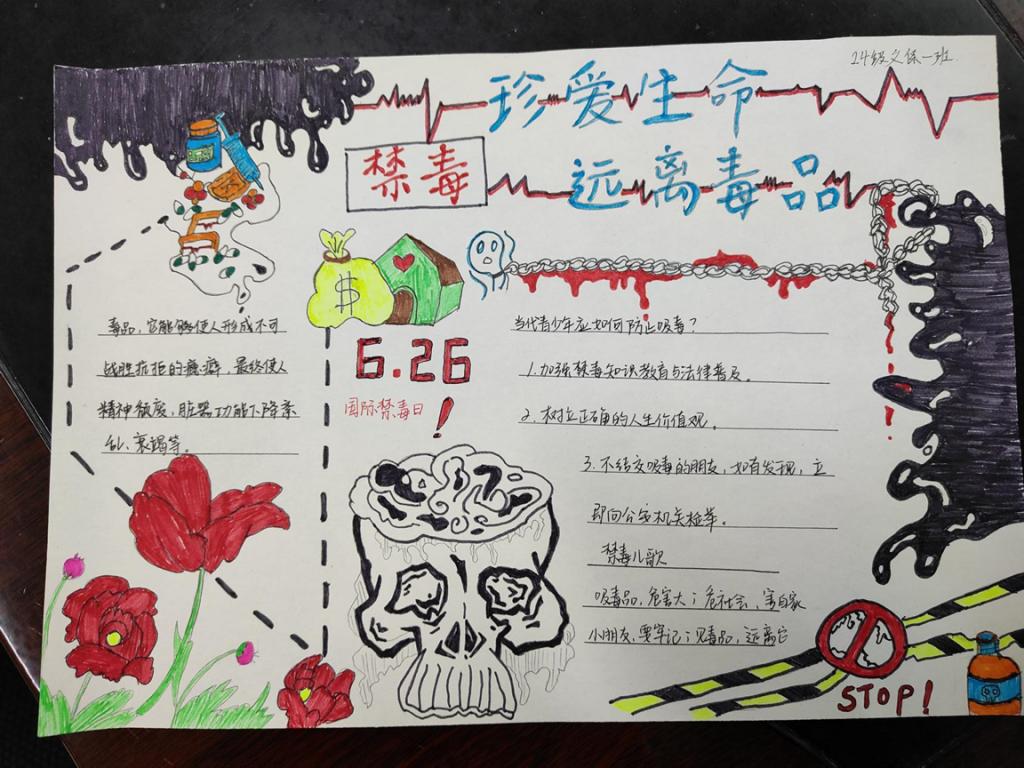 24级文保一班
珍爱生命
禁毒
远离毒品
毒品，它能够使人形成不可
战胜抗拒的瘾癖，最终使人
精神颓废，脏器功能下降紊
乱、衰竭等。
$
6.26
国际禁毒日
!
当代青少年应如何防止吸毒？
1.加强禁毒知识教育与法律普及。
2.树立正确的人生价值观。
3.不结交吸毒的朋友，如有发现，立
即向公安机关检举。
禁毒儿歌
吸毒品，危害大；危社会、害自家
小朋友，要牢记；见毒品，远离它
STOP!